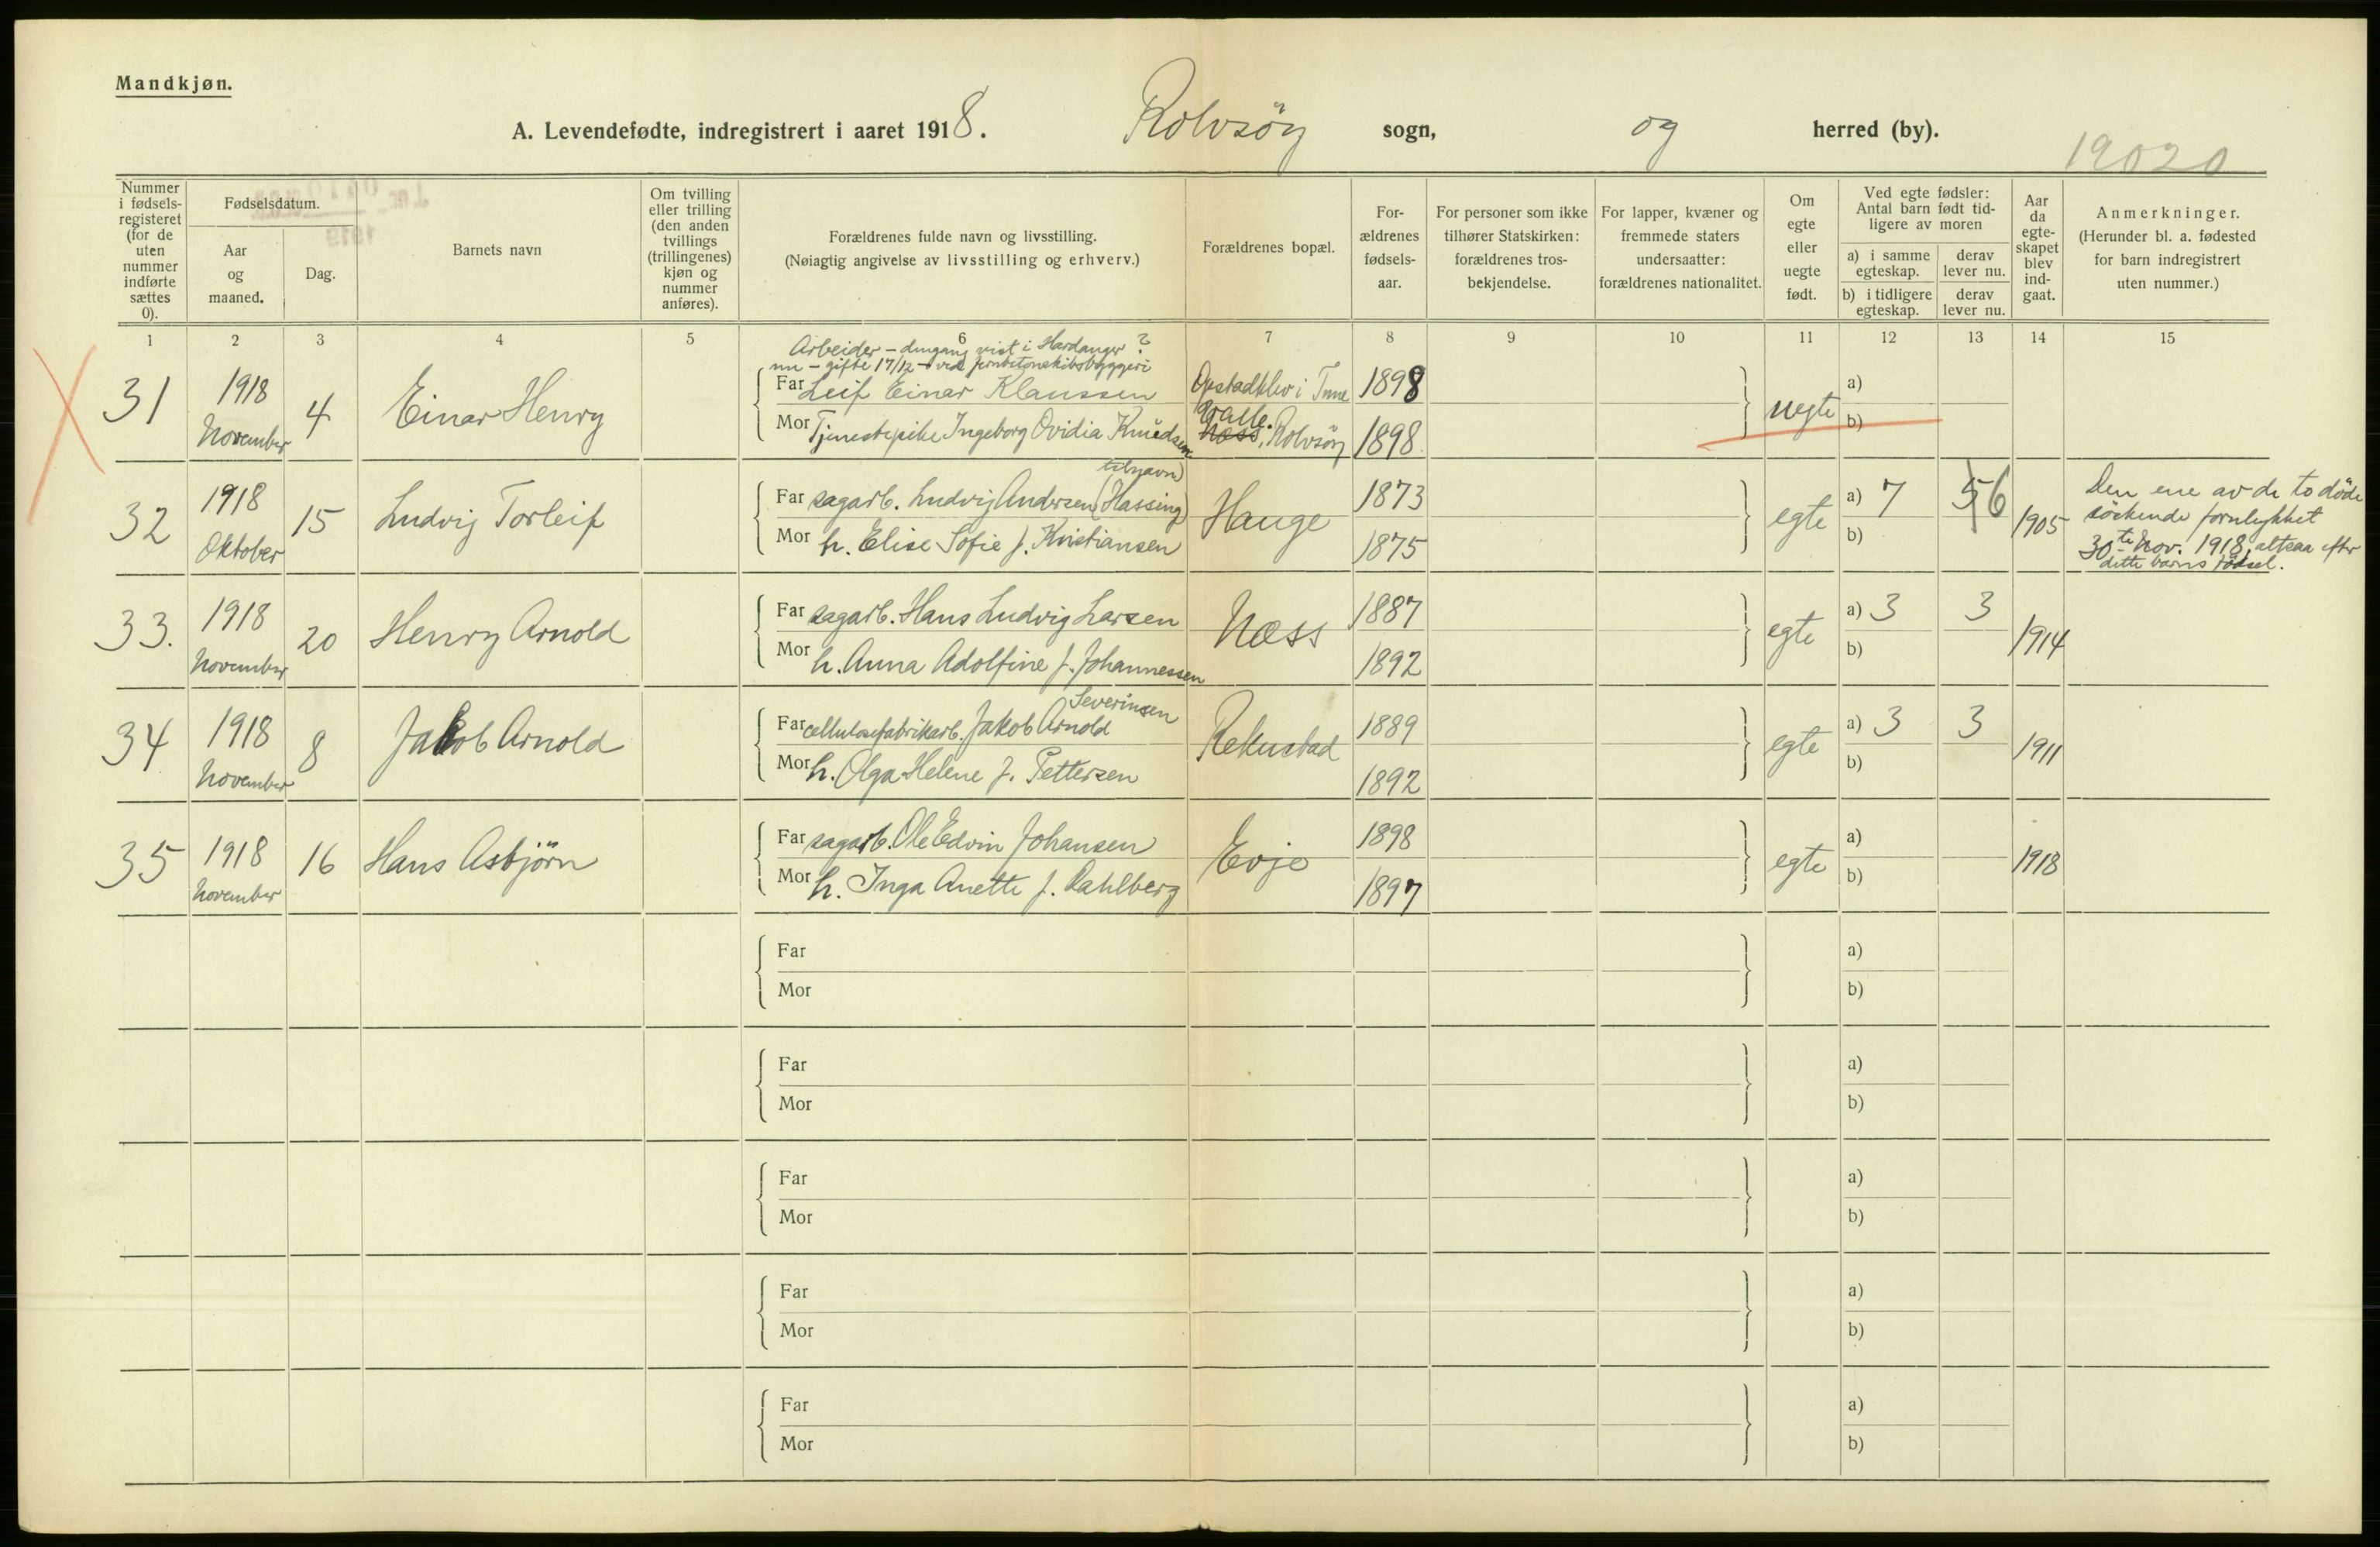 Mandkjøn.
A. Levendefødte, indregistrert i aaret 1918. Rolvsöy sogn, og herred (by).
19020
Nummer i fødselsregisteret (for de uten nummer indførte sættes 0).
Fødselsdatum.
Aar og maaned.
Dag.
Barnets navn
Om tvilling eller trilling (den anden tvillings (trillingenes) kjøn og nummer anføres).
Forældrenes fulde navn og livsstilling.
(Nøiagtig angivelse av livsstilling og erhverv.)
Forældrenes bopæl.
Forældrenes fødselsaar.
For personer som ikke tilhører Statskirken: forældrenes trosbekjendelse.
For lapper, kvæner og fremmede staters undersaatter: forældrenes nationalitet.
Om egte eller uegte født.
Ved egte fødsler: Antal barn født tidligere av moren
a) i samme egteskap.
derav lever nu.
b) i tidligere egteskap.
derav lever nu.
Aar da egteskapet blev indgaat.
Anmerkninger.
(Herunder bl. a. fødested for barn indregistrert uten nummer.)
1 2 3 4 5 6 7 8 9 10 11 12 13 14 15
Arbeider – dengang vist i Hardanger ?
nu – gifte 17/12 – ved jernbetonskibsbyggeri
31 1918 November 4 Einar Henry
Far Leif Einar Klaussen i Tune 1898
Mor Tjenestepike Ingeborg Ovidia Knudsen Valle. Næss, Rolvsöy 1898
uegte a) b)
32 1918 Oktober 15 Ludvig Torleif
Far sagarb. Ludvig Andersen (Hassing tilnavn) Hauge 1873
Mor h. Elise Sofie f. Kristiansen 1875
egte a) 7 5 6 b) 1905
Den ene av de to döde
söskende forulykket
30te Nov. 1918, altsaa efter
dette barns födsel.
33. 1918 November 20 Henry Arnold
Far sagarb. Hans Ludvig Larsen Næss 1887
Mor h. Anna Adolfine f. Johannessen 1892
egte a) 3 3 b) 1914
34 1918 November 8 Jakob Arnold
Far cellulosefabrikarb. Jakob Arnold Severinsen Rekustad 1889
Mor h. Olga Helene f. Pettersen 1892
egte a) 3 3 b) 1911
35 1918 November 16 Hans Asbjörn
Far sagarb. Ole Edvin Johansen Evje 1898
Mor h. Inga Anette f. Dahlberg 1897
egte a) b) 1918
Far a)
Mor b)
Far a)
Mor b)
Far a)
Mor b)
Far a)
Mor b)
Far a)
Mor b)